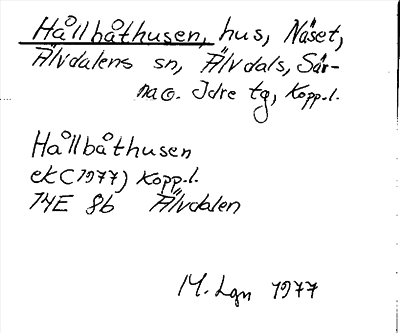 Hållbåthusen, hus, Näset,
Älvdalens sn, Älvdals, Sär-
na o. Idre tg, Kopp.l.
Hållbåthusen
ek (1977) Kopp.l.
14E 8b Älvdalen
M. Lgn 1977